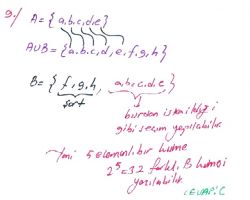 9-) A = { a,b,c,d,e }
A∪B = { a,b,c,d,e,f,g,h }
B = { f,g,h, a,b,c,d,e }
şart
burdan istenildiği
gibi seçim yapılabilir.
Yani 5 elemanlı bir küme
2^5 = 32 farklı B kümesi
yazılabilir.
CEVAP: C